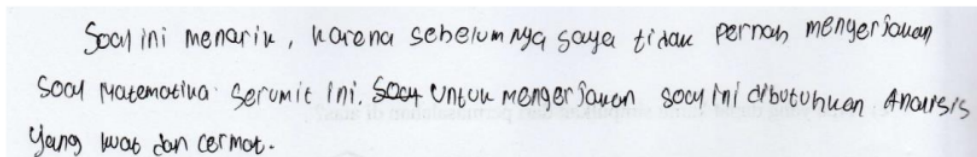 Soal ini menarik, karena sebelumnya saya tidak pernah mengerjakan
soal matematika serumit ini. Soal Untuk mengerjakan soal ini dibutuhkan Analisis
yang kuat dan cermat.